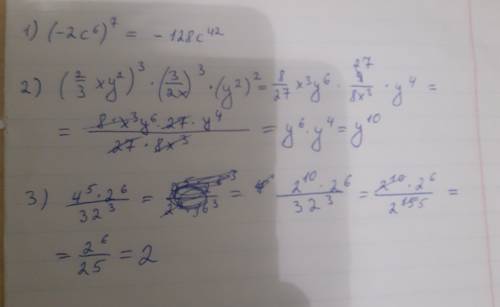 1) (-2c⁶)⁷ = - 128c⁴²
2) (2/3 xy²)³ · (3/2x)³ · (y²)² = 8/27 x³y⁶ · 27/8x³ · y⁴ =
= 8·x³y⁶·27·y⁴ / 27·8x³ = y⁶·y⁴ = y¹⁰
3) 4⁵·2⁶ / 32³ = = 2¹⁰·2⁶ / 32³ = 2¹⁰·2⁶ / 2¹⁵ =
= 2⁶ / 25 = 2